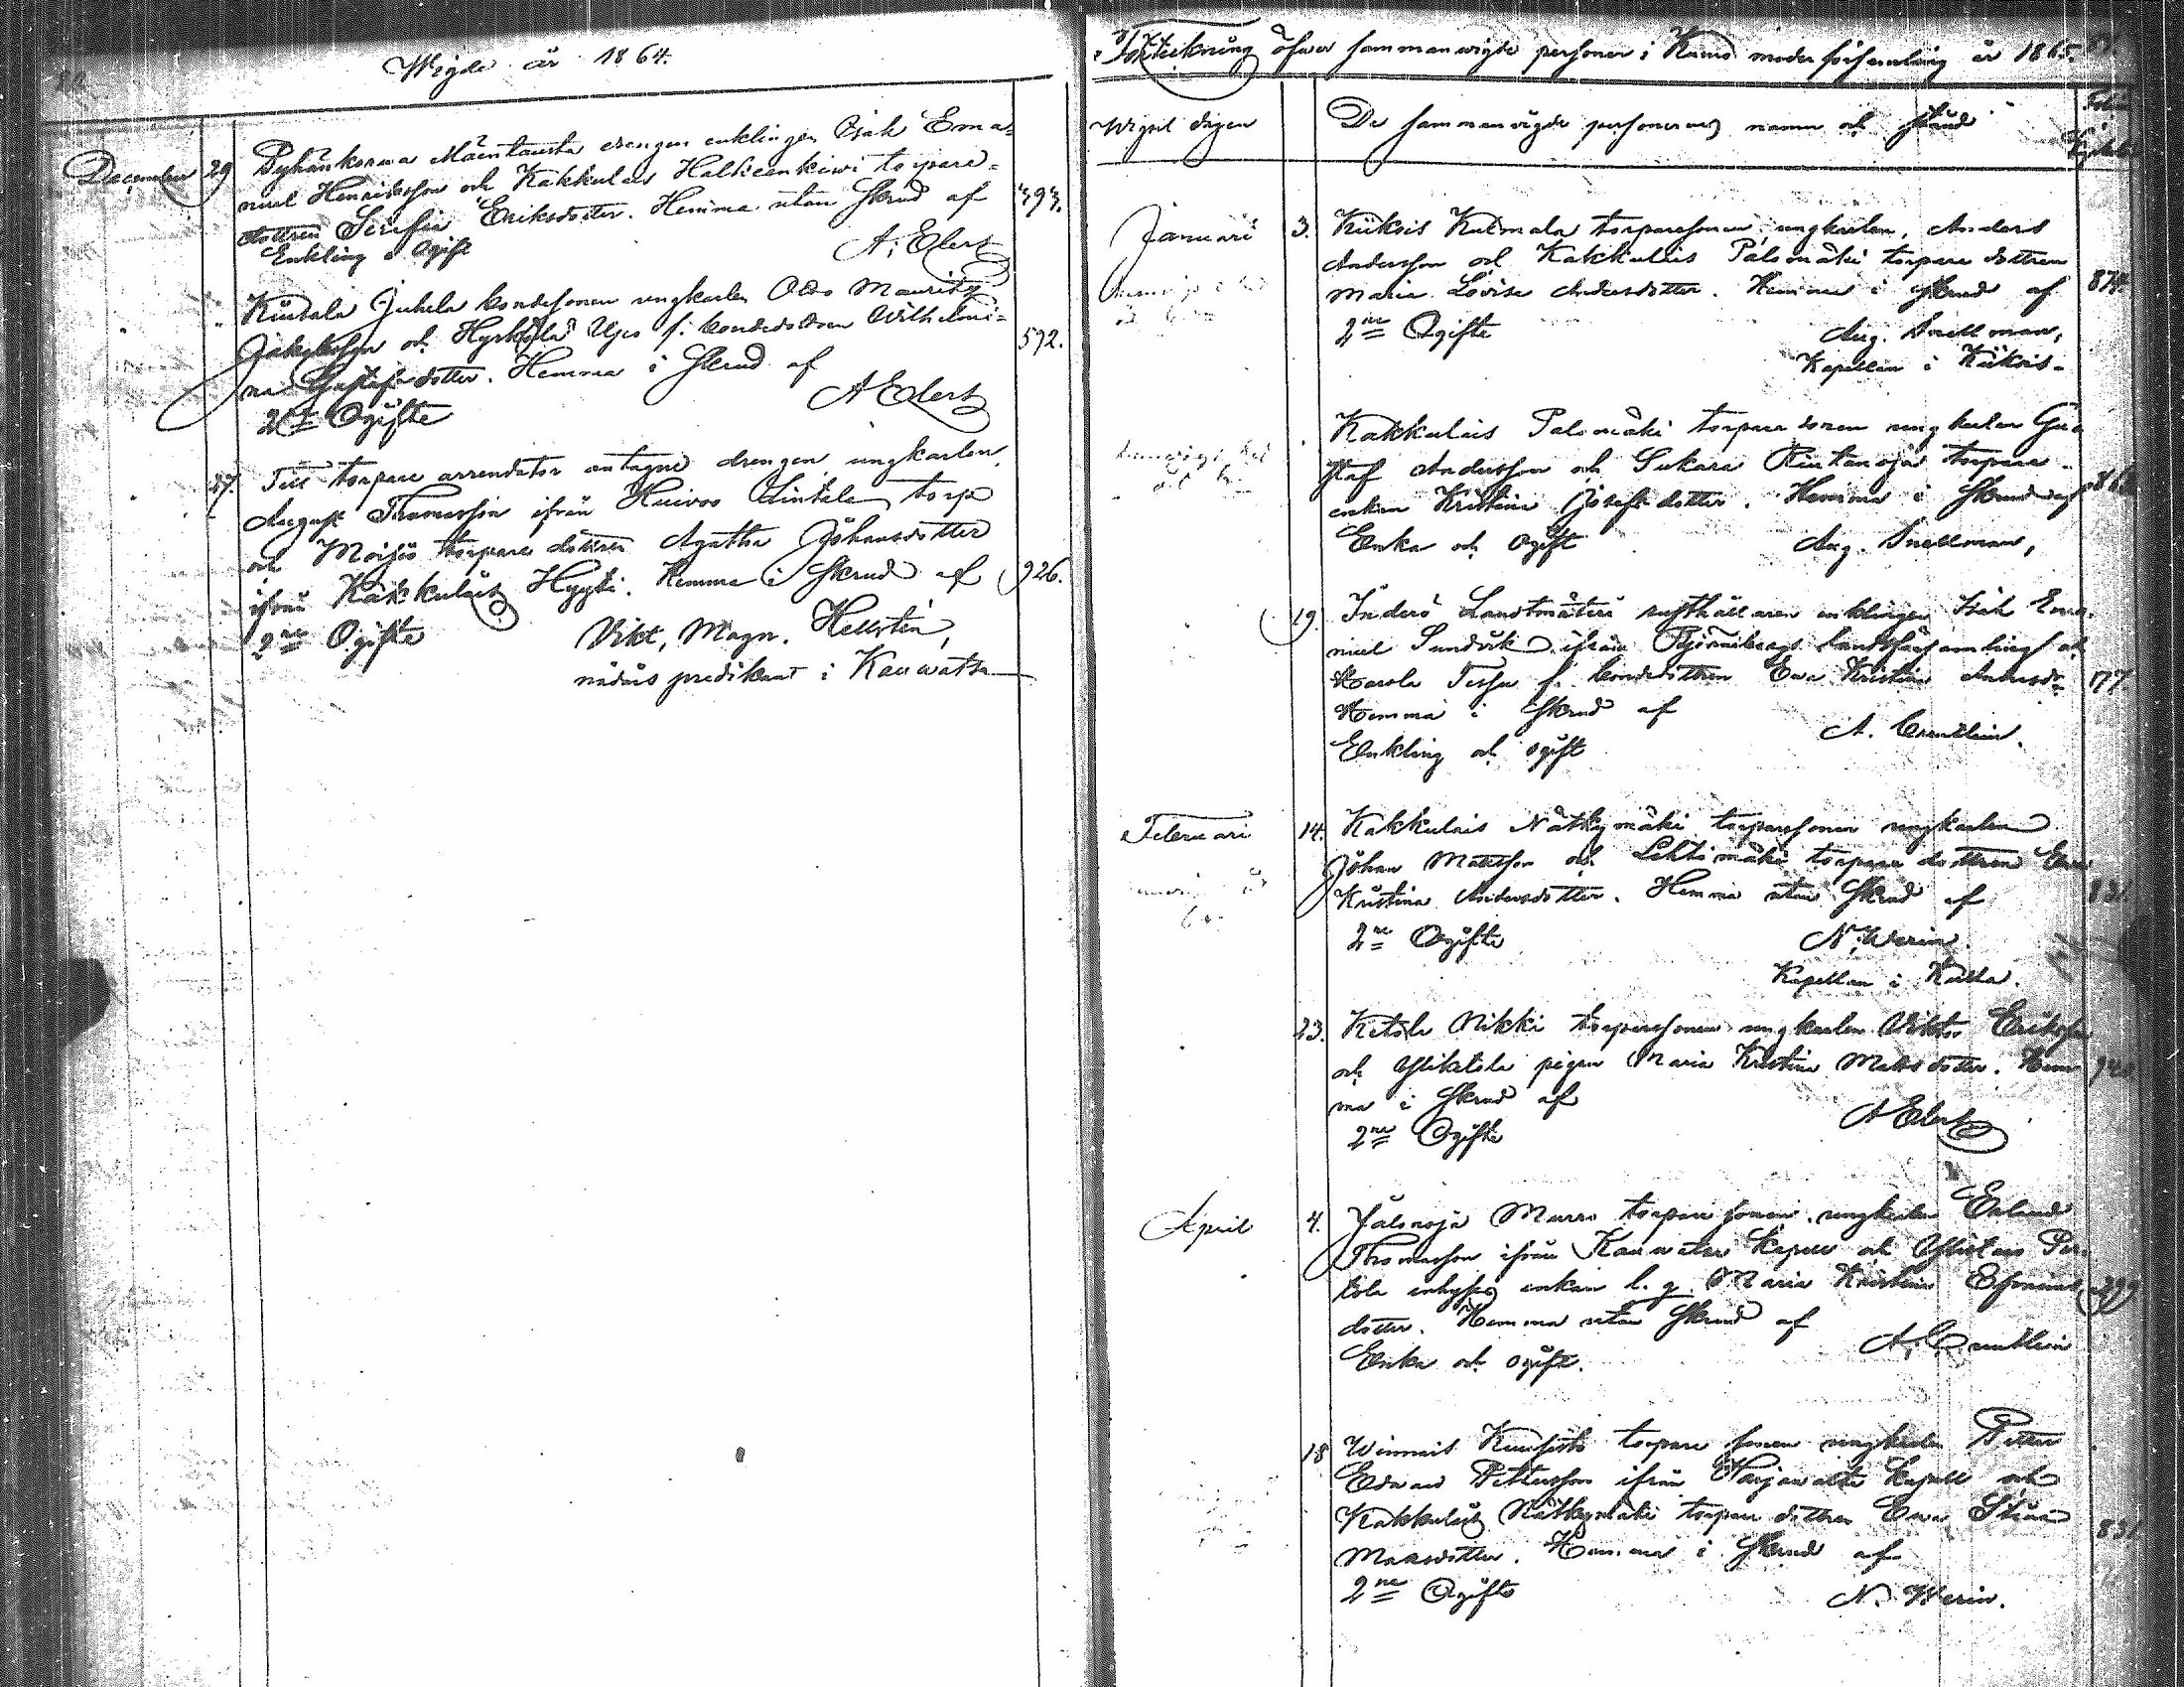 Wigde år 1864.
December 29 Pyhänkorwa Mäentausta drengen enklingen Isak Ema-
nuel Henriksson och Kakkulais Halkeenkiwi torpare-
dottren Serafia Eriksdotter. Hemma utan skrud af 393.
Enkling o Ogift A. Elert
Kiukala Juhela bondesonen ungkarlen Otto Maurits
Jakobsson och Hyrkölä Ujes f. bondedottren Wilhelmi- 592.
na Gustafsdotter. Hemma i skrud af
2ne Ogifte A Elert
27. Till torpare arrendator antagne drengen ungkarlen
August Thomasson ifrån Huivoo Lintala torp
och Moisio torpare dottren Agatha Johansdotter
ifrån Kakkulais Hygti. Hemma i skrud af 926.
2ne Ogifte Vikt. Magn. Hellstén,
nådårs predikant i Kauwatsa
Förteckning öfwer sammanwigde personer i Kumo moderförsamling år 1865.
Wigsel dagen De sammanwigde personernes namn och stånd
Januari 3. Kiikois Kulmala torparesonen, ungkarlen, Anders
Andersson och Kakkulais Palomäki torpare dottren
Maria Lovisa Andersdotter. Hemma i skrud af 874.
2ne Ogifte Aug. Snellman,
Kapellan i Kiikois.
Kakkulais Palomäki torpare sonen ungkarlen Gu-
staf Andersson och Sukara Rintanoja torpare-
enkan Kristina Josefsdotter. Hemma i skrud af
Enka och ogift Aug. Snellman,
19. Inderö Landtmäteri rusthållaren enklingen Isak Ema-
nuel Sundvik ifrån Björneborgs landsförsamling och
Harola f. bondedottren Ewa Kristina Andersdr 177
Hemma i skrud af
Enkling och ogift A. Cumtlin.
Februari 14. Kakkulais Nätkymäki torparesonen ungkarlen
Johan Mattsson och Lehtimäki torpare dottren Ewa
Kristina Andersdotter. Hemma utan skrud af 831.
2ne Ogifte N. Werin.
Kapellan i
23. Ketola Mikki torparesonen ungkarlen Viktor Eriksson
och Ylistalo pigan Maria Kristina Matsdotter. Hem-
ma i skrud af
2ne Ogifte A Elert
April 4. Jalonoja Murro torpare sonen ungkarlen Erland
Thomasson ifrån Kauwatsa kapell och Ylistaro Per-
tola inhyses enkan l. g. Maria Kristina Esfrims-
dotter. Hemma utan skrud af
Enka och ogift.
18 Winnais Kuusisto torpare sonen ungkarlen Petter
Edward Pettersson ifrån Harjawalta kapell och
Kakkulais Nätkymäki torpare dottren Ewa Stina 831
Matsdotter. Hemma i skrud af
2ne Ogifte N. Werin.